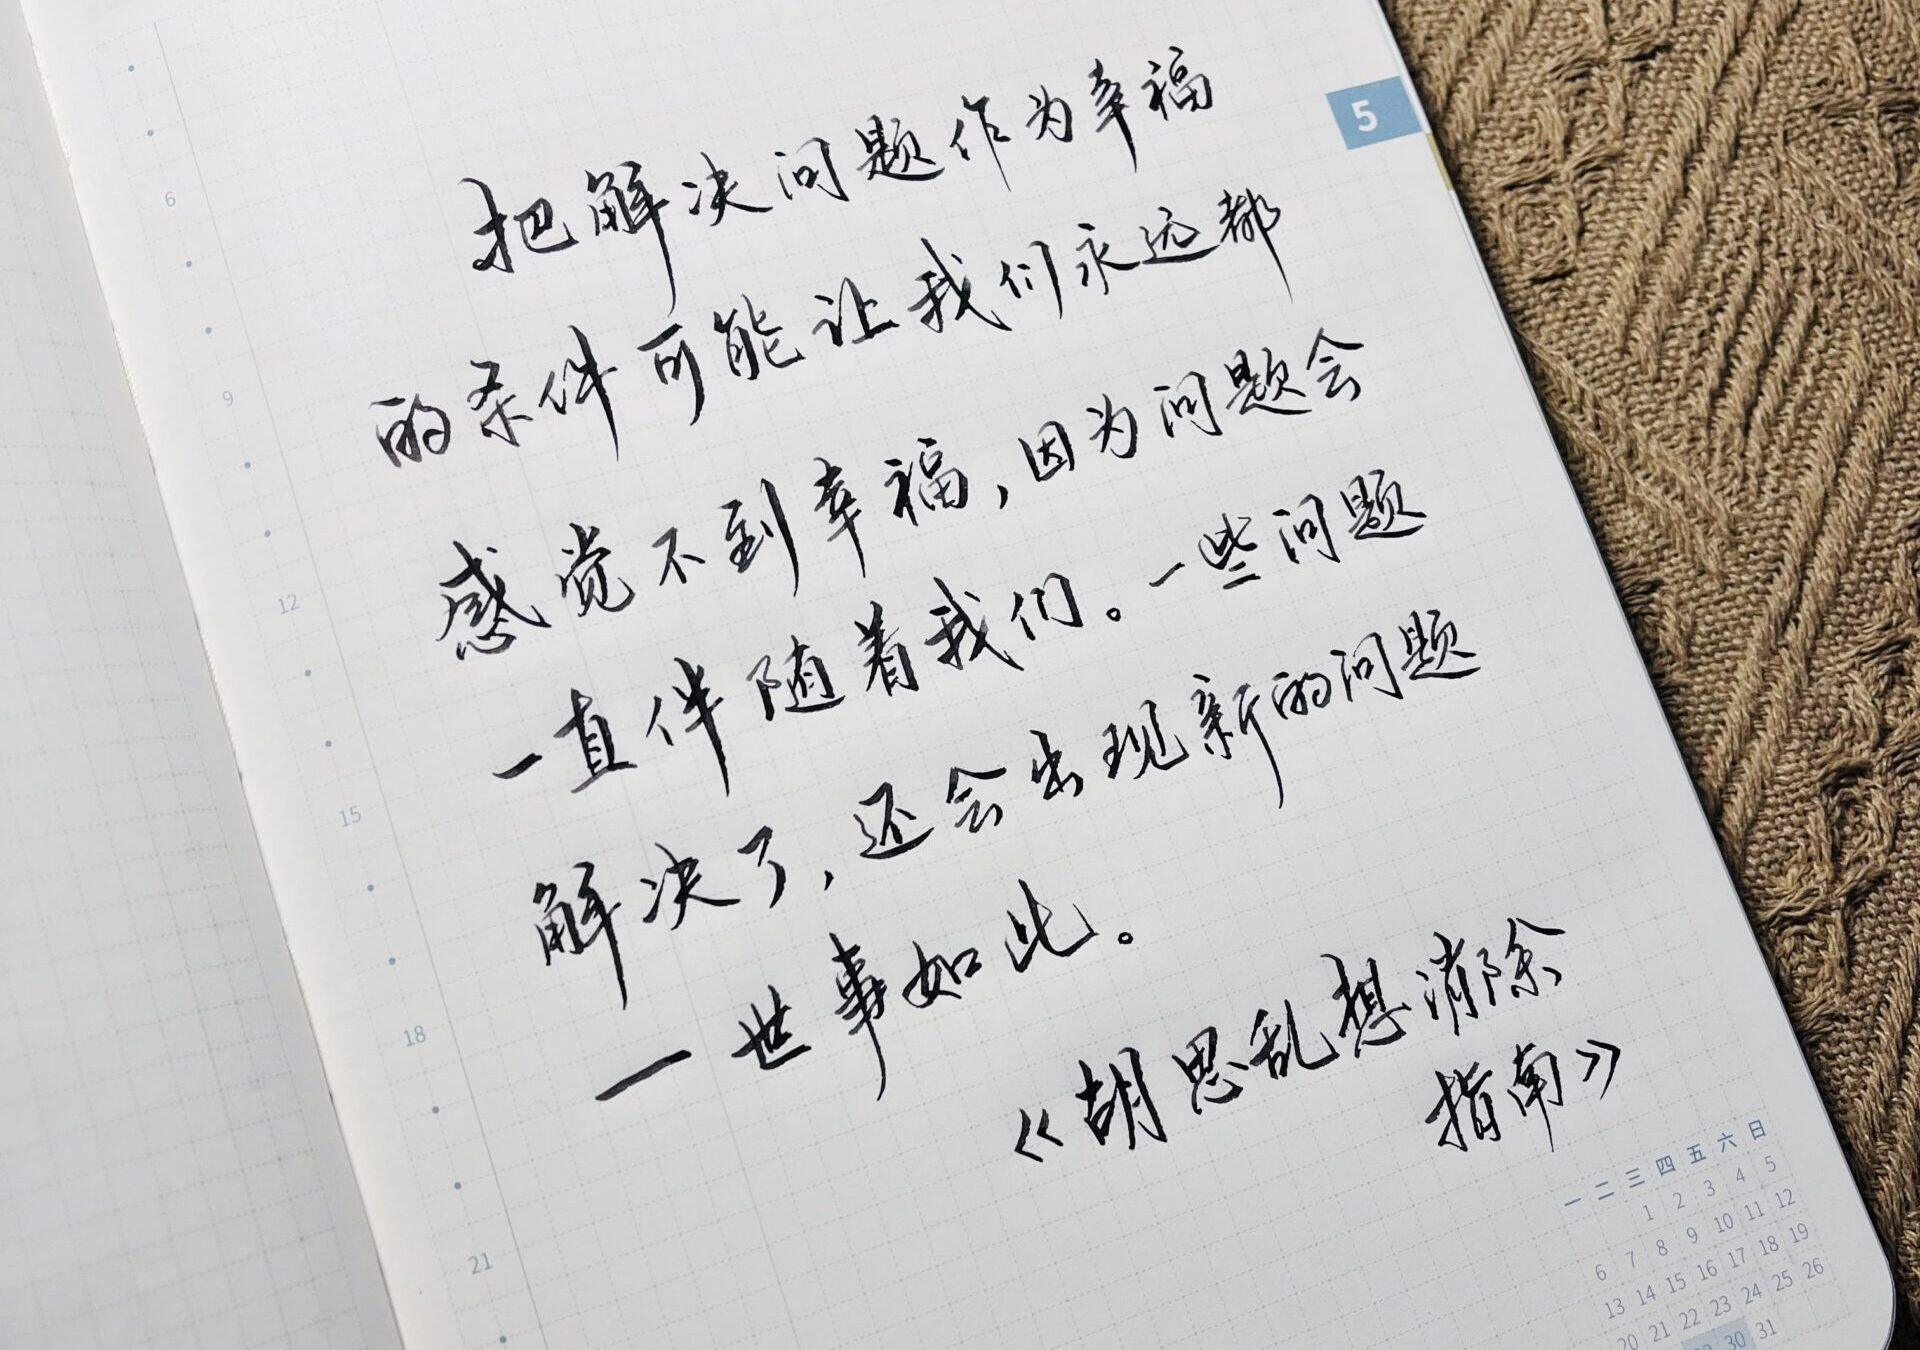 5
把解决问题作为幸福
的条件可能让我们永远都
感觉不到幸福，因为问题会
一直伴随着我们。一些问题
解决了，还会出现新的问题
一世事如此。
《胡思乱想消除
指南》
6
9
12
15
18
21
一 二 三 四 五 六 日
1 2 3 4 5
6 7 8 9 10 11 12
13 14 15 16 17 18 19
20 21 22 23 24 25 26
30 31